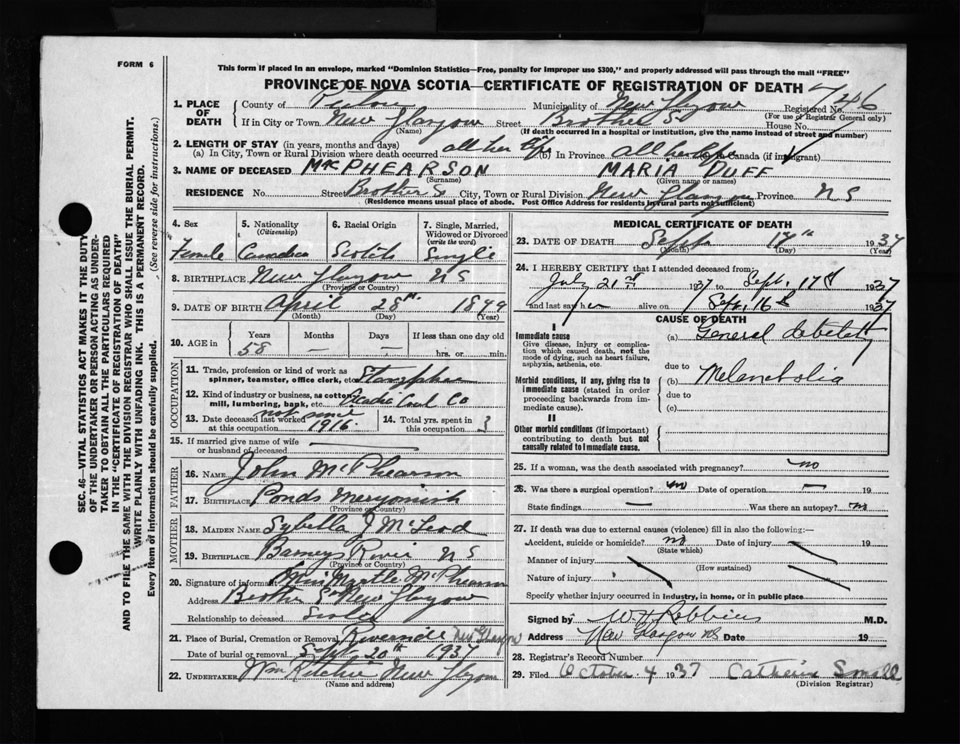 FORM 6
This form if placed in an envelope, marked "Dominion Statistics—Free, penalty for improper use $300," and properly addressed will pass through the mail "FREE"
PROVINCE OF NOVA SCOTIA—CERTIFICATE OF REGISTRATION OF DEATH
1. PLACE OF DEATH
County of Pictou Municipality of New Glasgow Registered No. 746
(For use of Registrar General only)
If in City or Town New Glasgow Street Brother S House No.
(Name) (If death occurred in a hospital or institution, give the name instead of street and number)
2. LENGTH OF STAY (in years, months and days)
(a) In City, Town or Rural Division where death occurred all her life (b) In Province all her life (c) In Canada (if immigrant)
3. NAME OF DECEASED McPHEARSON MARIA DUFF
(Surname) (Given name or names)
RESIDENCE No. Street Brother S City, Town or Rural Division New Glasgow Province N S
(Residence means usual place of abode. Post Office Address for residents in rural parts not sufficient)
4. Sex Female
5. Nationality (Citizenship) Canadian
6. Racial Origin Scotch
7. Single, Married, Widowed or Divorced (write the word) Single
8. BIRTHPLACE New Glasgow N S
(Province or Country)
9. DATE OF BIRTH April 28th 1849
(Month) (Day) (Year)
10. AGE in Years 58 Months — Days — If less than one day old hrs. or min.
OCCUPATION
11. Trade, profession or kind of work as spinner, teamster, office clerk, etc.
12. Kind of industry or business, as cotton mill, lumbering, bank, etc. Acadia Coal Co
13. Date deceased last worked at this occupation not since 1916.
14. Total yrs. spent in this occupation
15. If married give name of wife or husband of deceased —
FATHER
16. NAME John McPhearson
17. BIRTHPLACE Ponds Merigomish
(Province or Country)
MOTHER
18. MAIDEN NAME Sybella J McLeod
19. BIRTHPLACE Barneys River N S
(Province or Country)
20. Signature of informant Myrtle McPhearson
Address Brother S New Glasgow
Relationship to deceased Sister
21. Place of Burial, Cremation or Removal Riverside New Glasgow
Date of burial or removal Sept. 20th 1937
22. UNDERTAKER New Glasgow
(Name and address)
MEDICAL CERTIFICATE OF DEATH
23. DATE OF DEATH Sept 17th 1937
(Month) (Day) (Year)
24. I HEREBY CERTIFY that I attended deceased from:
July 21st 1937 to Sept. 17th 1937
and last saw her alive on Sept. 16th 1937
CAUSE OF DEATH
I
Immediate cause
Give disease, injury or complication which caused death, not the mode of dying, such as heart failure, asphyxia, asthenia, etc.
(a) General debility
due to
Morbid conditions, if any, giving rise to immediate cause (stated in order proceeding backwards from immediate cause).
(b) Melancholia
due to
(c)
II
Other morbid conditions (if important) contributing to death but not causally related to immediate cause.
25. If a woman, was the death associated with pregnancy? no
26. Was there a surgical operation? no Date of operation — 19
State findings — Was there an autopsy? no
27. If death was due to external causes (violence) fill in also the following:—
Accident, suicide or homicide? no Date of injury 19
(State which)
Manner of injury
(How sustained)
Nature of injury
Specify whether injury occurred in industry, in home, or in public place
Signed by W H Robbins M.D.
Address New Glasgow NS Date 19
28. Registrar's Record Number
29. Filed October 4 1937 Small
(Division Registrar)
SEC. 46—VITAL STATISTICS ACT MAKES IT THE DUTY
OF THE UNDERTAKER OR PERSON ACTING AS UNDER-
TAKER TO OBTAIN ALL THE PARTICULARS REQUIRED
IN THE "CERTIFICATE OF REGISTRATION OF DEATH"
AND TO FILE THE SAME WITH THE DIVISION REGISTRAR WHO SHALL ISSUE THE BURIAL PERMIT.
WRITE PLAINLY WITH UNFADING INK. THIS IS A PERMANENT RECORD.
Every item of information should be carefully supplied. (See reverse side for instructions.)